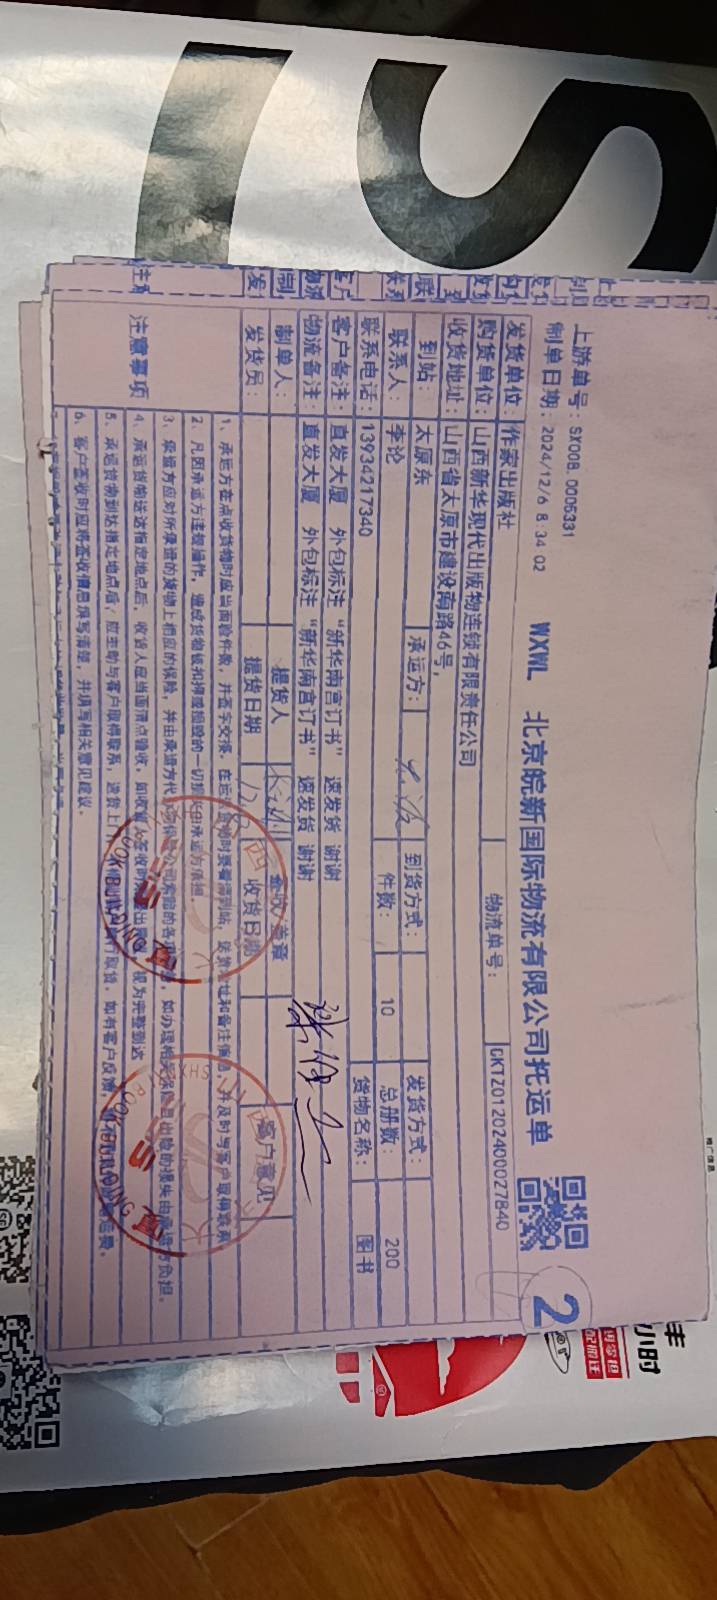 上游单号：SX00B.0005331
制单日期：2024/12/6 8:34:02
WXWL 北京皖新国际物流有限公司托运单
2
物流单号：CKTZ01202400027840
发货单位：作家出版社
购货单位：山西新华现代出版物连锁有限责任公司
收货地址：山西省太原市建设南路46号,
到站：太原东 承运方： 到货方式： 发货方式：
联系人：李论 件数：10 总册数：200
联系电话：13934217340 货物名称：图书
客户备注：直发大厦 外包标注“新华南宫订书” 速发货 谢谢
物流备注：直发大厦 外包标注“新华南宫订书” 速发货 谢谢
制单人： 提货人 签收/盖章 客户意见
发货员： 提货日期 收货日期
注意事项
1、承运方在点收货物时应当面验件数，并签字交接，在运
2、凡因承运方违规操作，造成货物被扣押或检验的一切损失由承运方承担。
3、承运方应对所承运的货物上相应的保险，并由承运方代
4、承运货物送达指定地点后，收货人应当面清点验收，
5、承运货物到达指定地点后，应主动与客户取得联系，送货上门
6、客户签收时应将签收信息填写清楚，并填写相关意见建议。